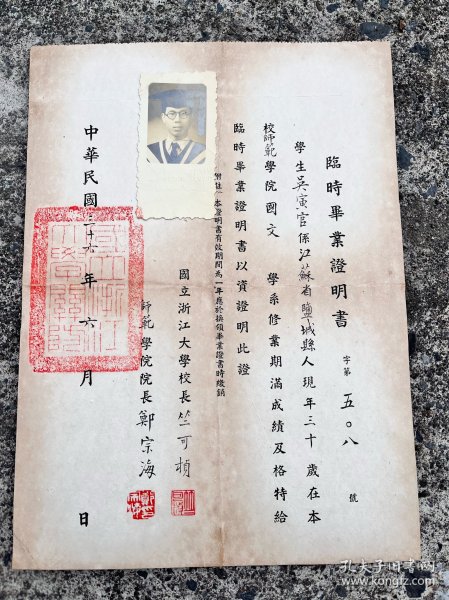 臨時畢業證明書
字第 五〇八 號
學生吳寅官係江蘇省鹽城縣人現年三十歲在本
校師範學院國文 學系修業期滿成績及格特給
臨時畢業證明書以資證明此證
附註 本證明書有效期間為一年應於換領畢業證書時繳銷
國立浙江大學校長竺可楨
師範學院院長鄭宗海
中華民國三十六年六月 日
國立浙江大學關防
孔夫子旧书网
www.kongfz.com